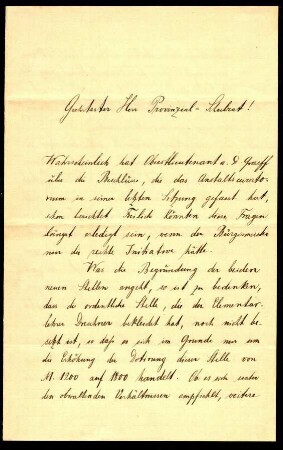 Geehrtester Herr Provinzial-Schulrat!
Wahrscheinlich hat Oberstlieutenant a. D.
über die Beschlüsse, die das Anstaltscurato-
rium in seiner letzten Sitzung gefasst hat,
schon berichtet. Freilich könnten diese Fragen
längst erledigt sein, wenn der Bürgermeister
nur die rechte Initiative hätte.
Was die Begründung der beiden
neuen Stellen angeht, so ist zu bedenken,
dass die ordentliche Stelle, die der Elementar-
lehrer bekleidet hat, noch nicht be-
setzt ist, so dass es sich im Grunde nur um
die Erhöhung der Dotirung dieser Stelle von
M. 1200 auf 1800 handelt. Ob es sich unter
den obwaltenden Verhältnissen empfiehlt, weitere